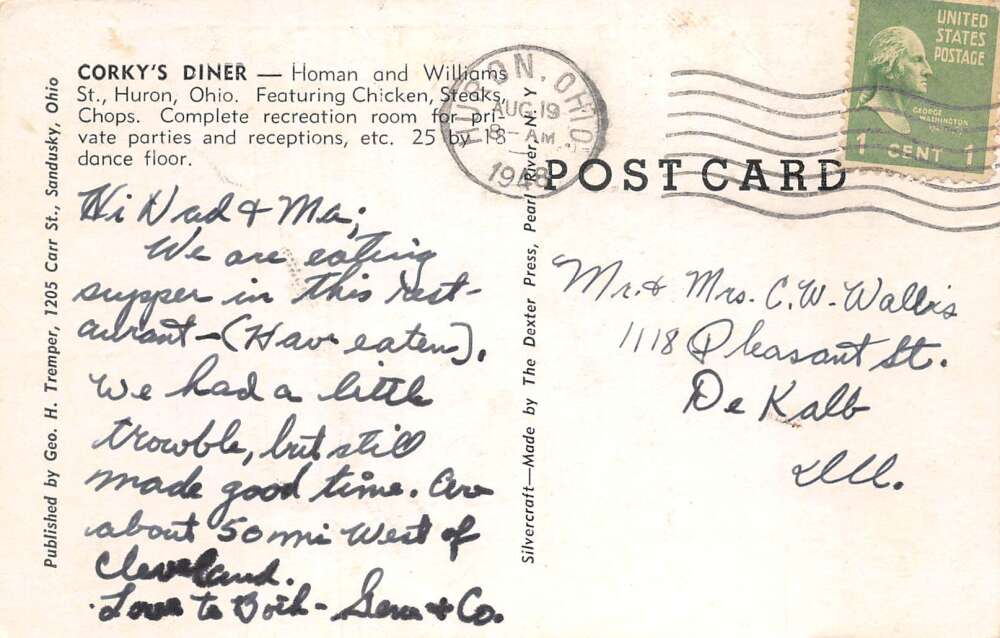 CORKY'S DINER — Homan and Williams
St., Huron, Ohio. Featuring Chicken, Steaks,
Chops. Complete recreation room for pri-
vate parties and receptions, etc. 25 by 18
dance floor.
Hi Dad & Ma;
We are eating
supper in this rest-
aurant—(Have eaten).
We had a little
trouble, but still
made good time. Are
about 50 mi West of
Cleveland.
Love to Both - & Co.
Published by Geo. H. Tremper, 1205 Carr St., Sandusky, Ohio
Silvercraft—Made by The Dexter Press, Pearl River, N Y
HURON, OHIO
AUG 19
8 - AM
1948
UNITED
STATES
POSTAGE
GEORGE
WASHINGTON
1 CENT 1
POST CARD
Mr. & Mrs. C. W. Wallis
1118 Pleasant St.
De Kalb
Ill.